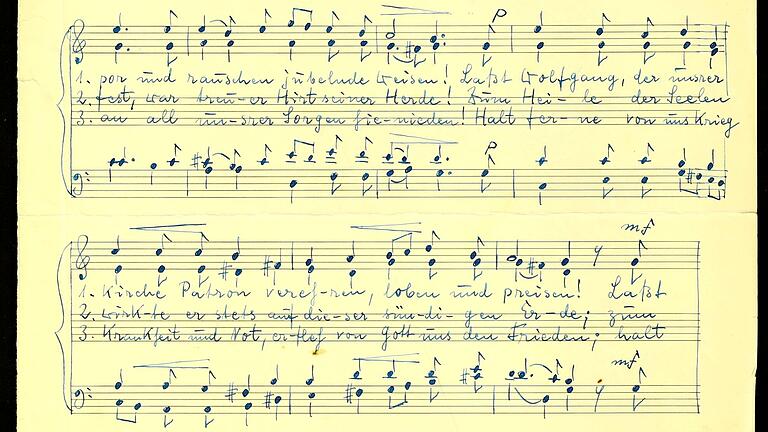 p
1. por und rauschen jubelnde Weisen! Laßt Wolfgang, der unsrer
2. fest, war treu-er Hirt seiner Herde! Zum Hei- le der Seelen
3. an all un-srer Sorgen hie-nieden! Halt fer- ne von uns Krieg
p
mf
1. Kirche Patron vereh-ren, loben und preisen! Laßt
2. wirk-te er stets auf die-ser sün-di-gen Er-de; zum
3. Krankheit und Not, er-fleh von Gott uns den Frieden; halt
mf